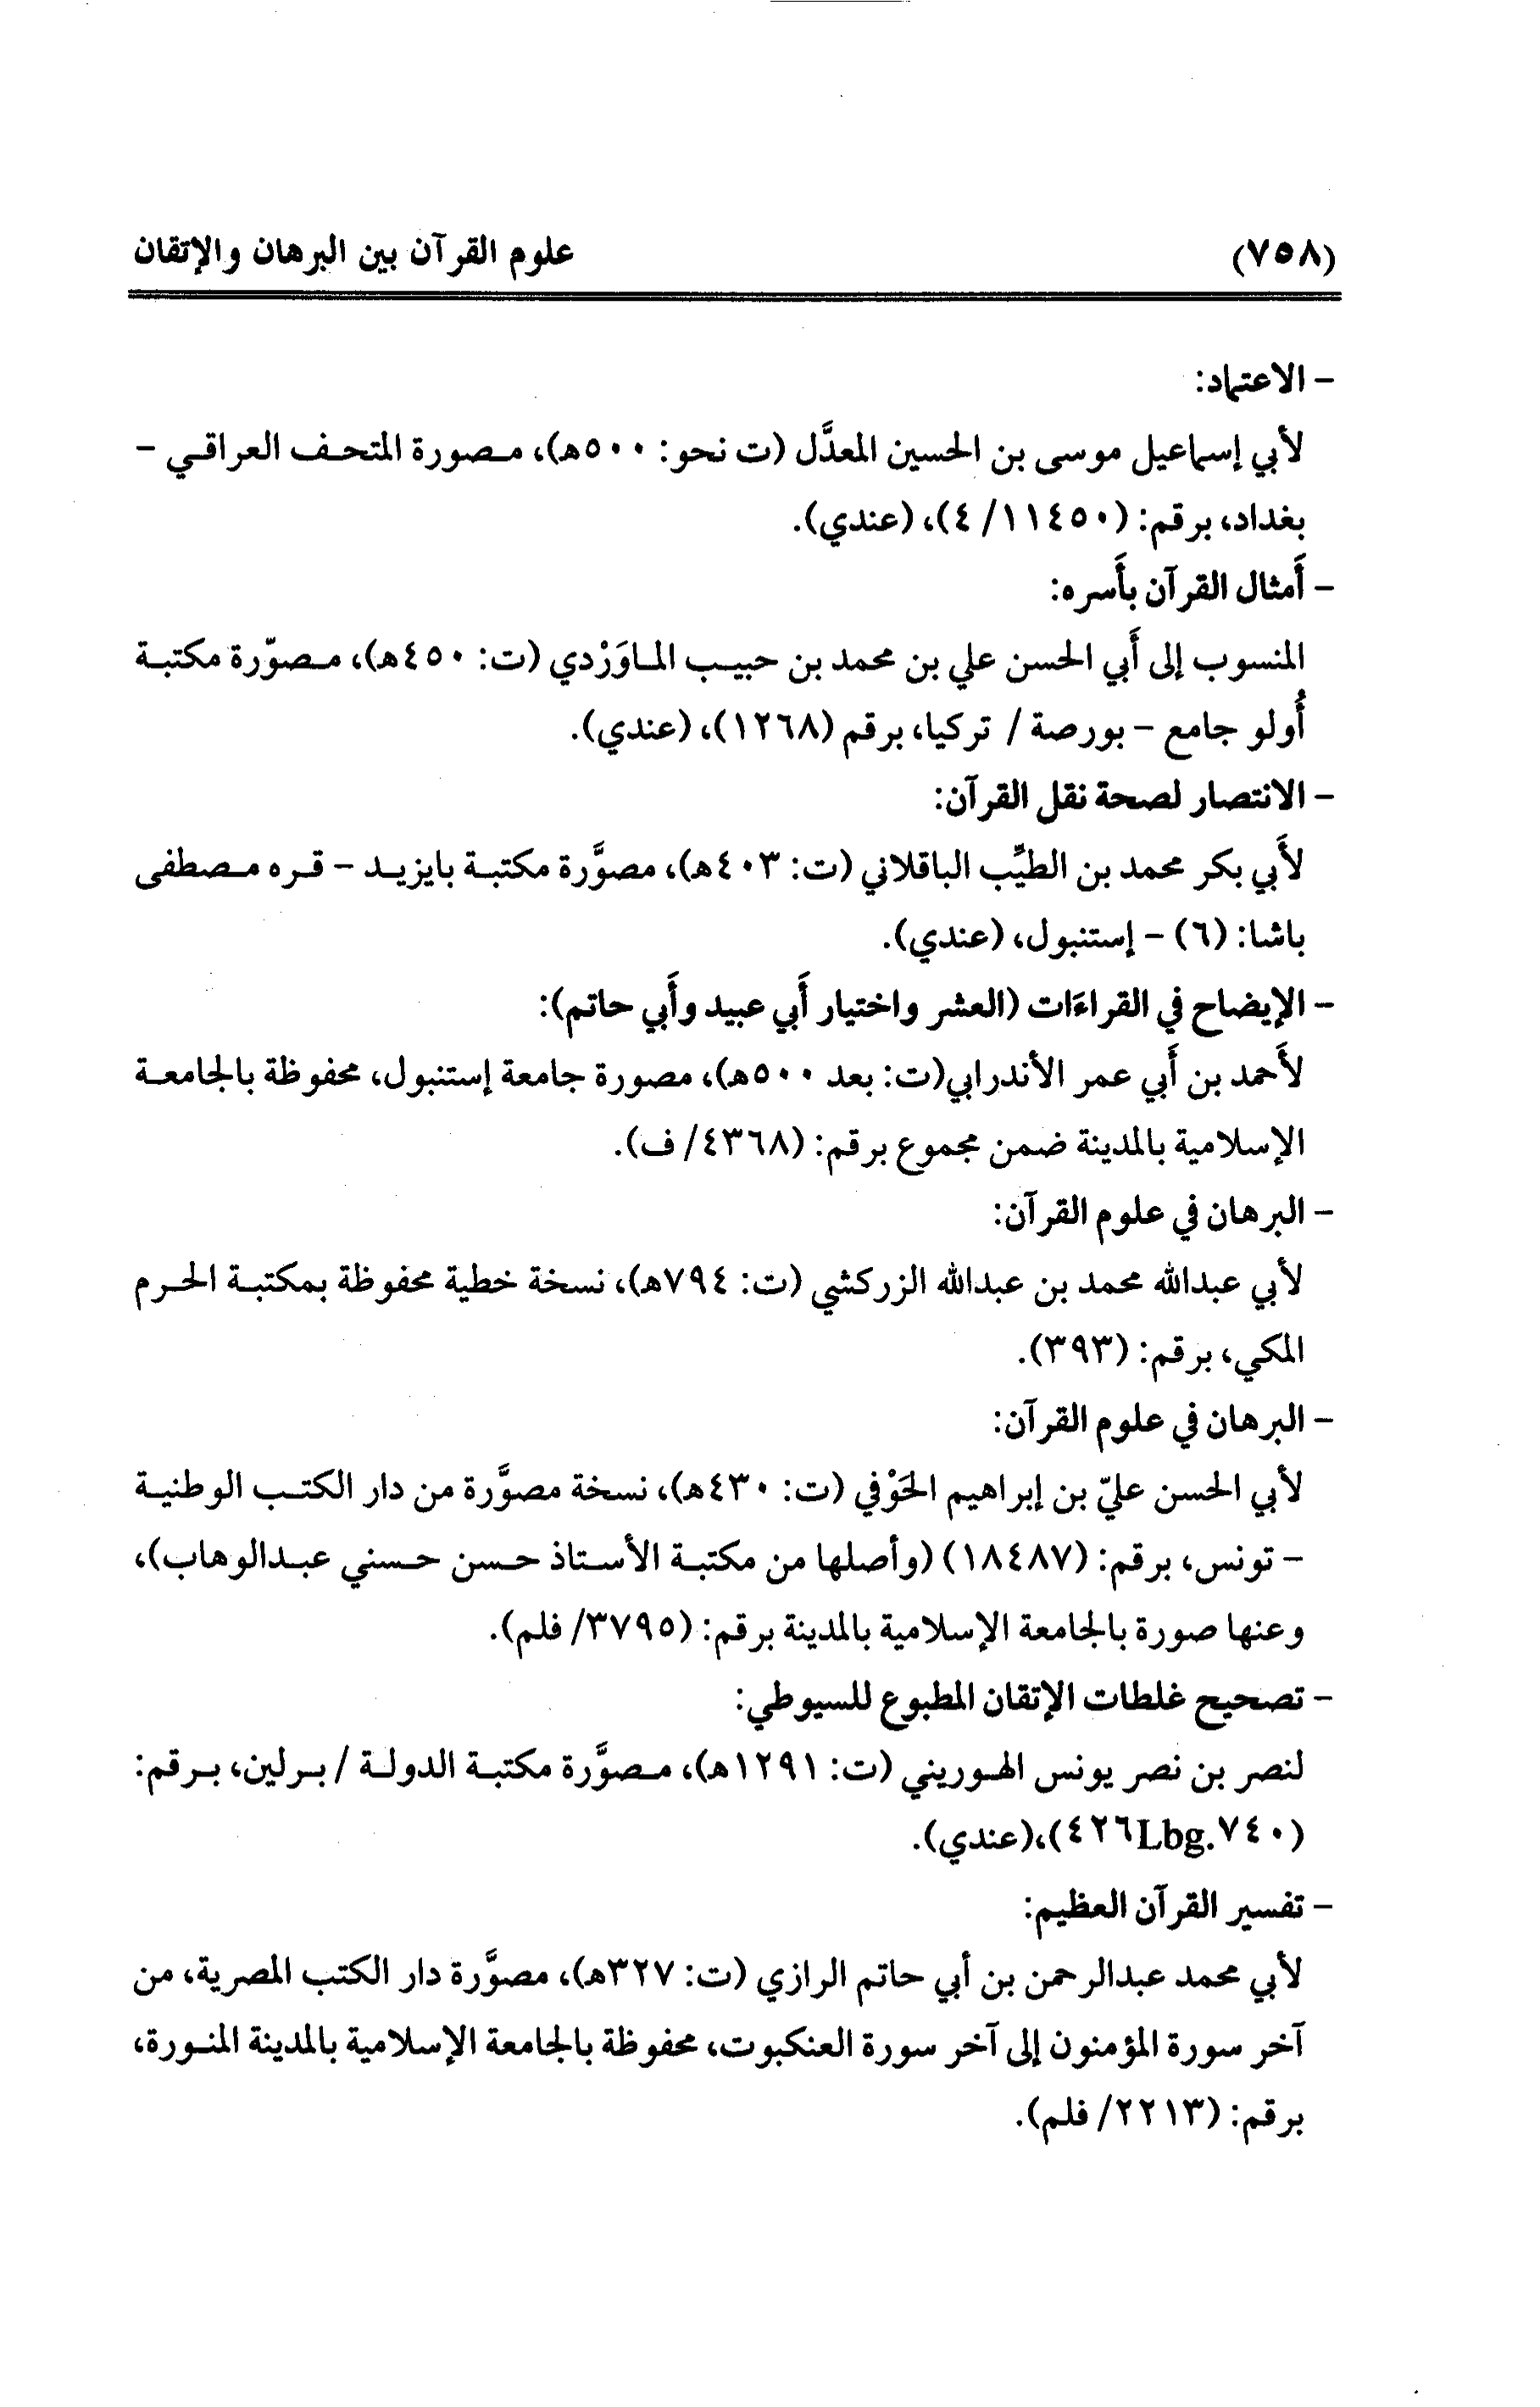 (٧٥٨) علوم القرآن بين البرهان والإتقان
- الاعتماد:
لأبي إسماعيل موسى بن الحسين المعدَّل (ت نحو: ٥٠٠هـ)، مصورة المتحف العراقي -
بغداد، برقم: (١١٤٥٠/ ٤)، (عندي).
- أَمثال القرآن بأَسره:
المنسوب إلى أَبي الحسن علي بن محمد بن حبيب الماوَرْدي (ت: ٤٥٠هـ)، مصوّرة مكتبة
أُولو جامع - بورصة / تركيا، برقم (١٢٦٨)، (عندي).
- الانتصار لصحة نقل القرآن:
لأَبي بكر محمد بن الطيِّب الباقلاني (ت: ٤٠٣هـ)، مصوَّرة مكتبة بايزيد - قره مصطفى
باشا: (٦) - إستنبول، (عندي).
- الإيضاح في القراءَات (العشر واختيار أَبي عبيد وأَبي حاتم):
لأَحمد بن أَبي عمر الأندرابي(ت: بعد ٥٠٠هـ)، مصورة جامعة إستنبول، محفوظة بالجامعة
الإسلامية بالمدينة ضمن مجموع برقم: (٤٣٦٨/ ف).
- البرهان في علوم القرآن:
لأبي عبدالله محمد بن عبدالله الزركشي (ت: ٧٩٤هـ)، نسخة خطية محفوظة بمكتبة الحرم
المكي، برقم: (٣٩٣).
- البرهان في علوم القرآن:
لأبي الحسن عليّ بن إبراهيم الحَوْفي (ت: ٤٣٠هـ)، نسخة مصوَّرة من دار الكتب الوطنية
- تونس، برقم: (١٨٤٨٧) (وأصلها من مكتبة الأستاذ حسن حسني عبدالوهاب)،
وعنها صورة بالجامعة الإسلامية بالمدينة برقم: (٣٧٩٥/ فلم).
- تصحيح غلطات الإتقان المطبوع للسيوطي:
لنصر بن نصر يونس الهوريني (ت: ١٢٩١هـ)، مصوَّرة مكتبة الدولة / برلين، برقم:
(٤٢٦Lbg.٧٤٠)،(عندي).
- تفسير القرآن العظيم:
لأبي محمد عبدالرحمن بن أبي حاتم الرازي (ت: ٣٢٧هـ)، مصوَّرة دار الكتب المصرية، من
آخر سورة المؤمنون إلى آخر سورة العنكبوت، محفوظة بالجامعة الإسلامية بالمدينة المنورة،
برقم: (٢٢١٣/ فلم).